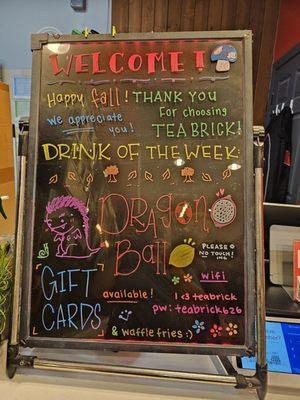 WELCOME!
Happy fall! THANK YOU
We appreciate you!
For choosing
TEA BRICK!
DRINK OF THE WEEK:
DRAGON
BALL
PLEASE
NO TOUCH!
GIFT
CARDS
available!
wifi
I <3 teabrick
pw: teabrick626
& waffle fries :)